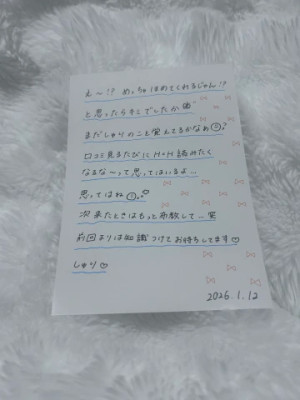 え〜!? めっちゃほめてくれるじゃん!?
と思ったらキミでしたか
まだしゅりのこと覚えてるかなぁ
口コミ見るたびにH×H読みたく
なるな〜って思ってはいるよ...
思ってはね
次来たときはもっと布教して...笑
前回よりは知識つけてお待ちしてます♡
しゅり♡
2026.1.12